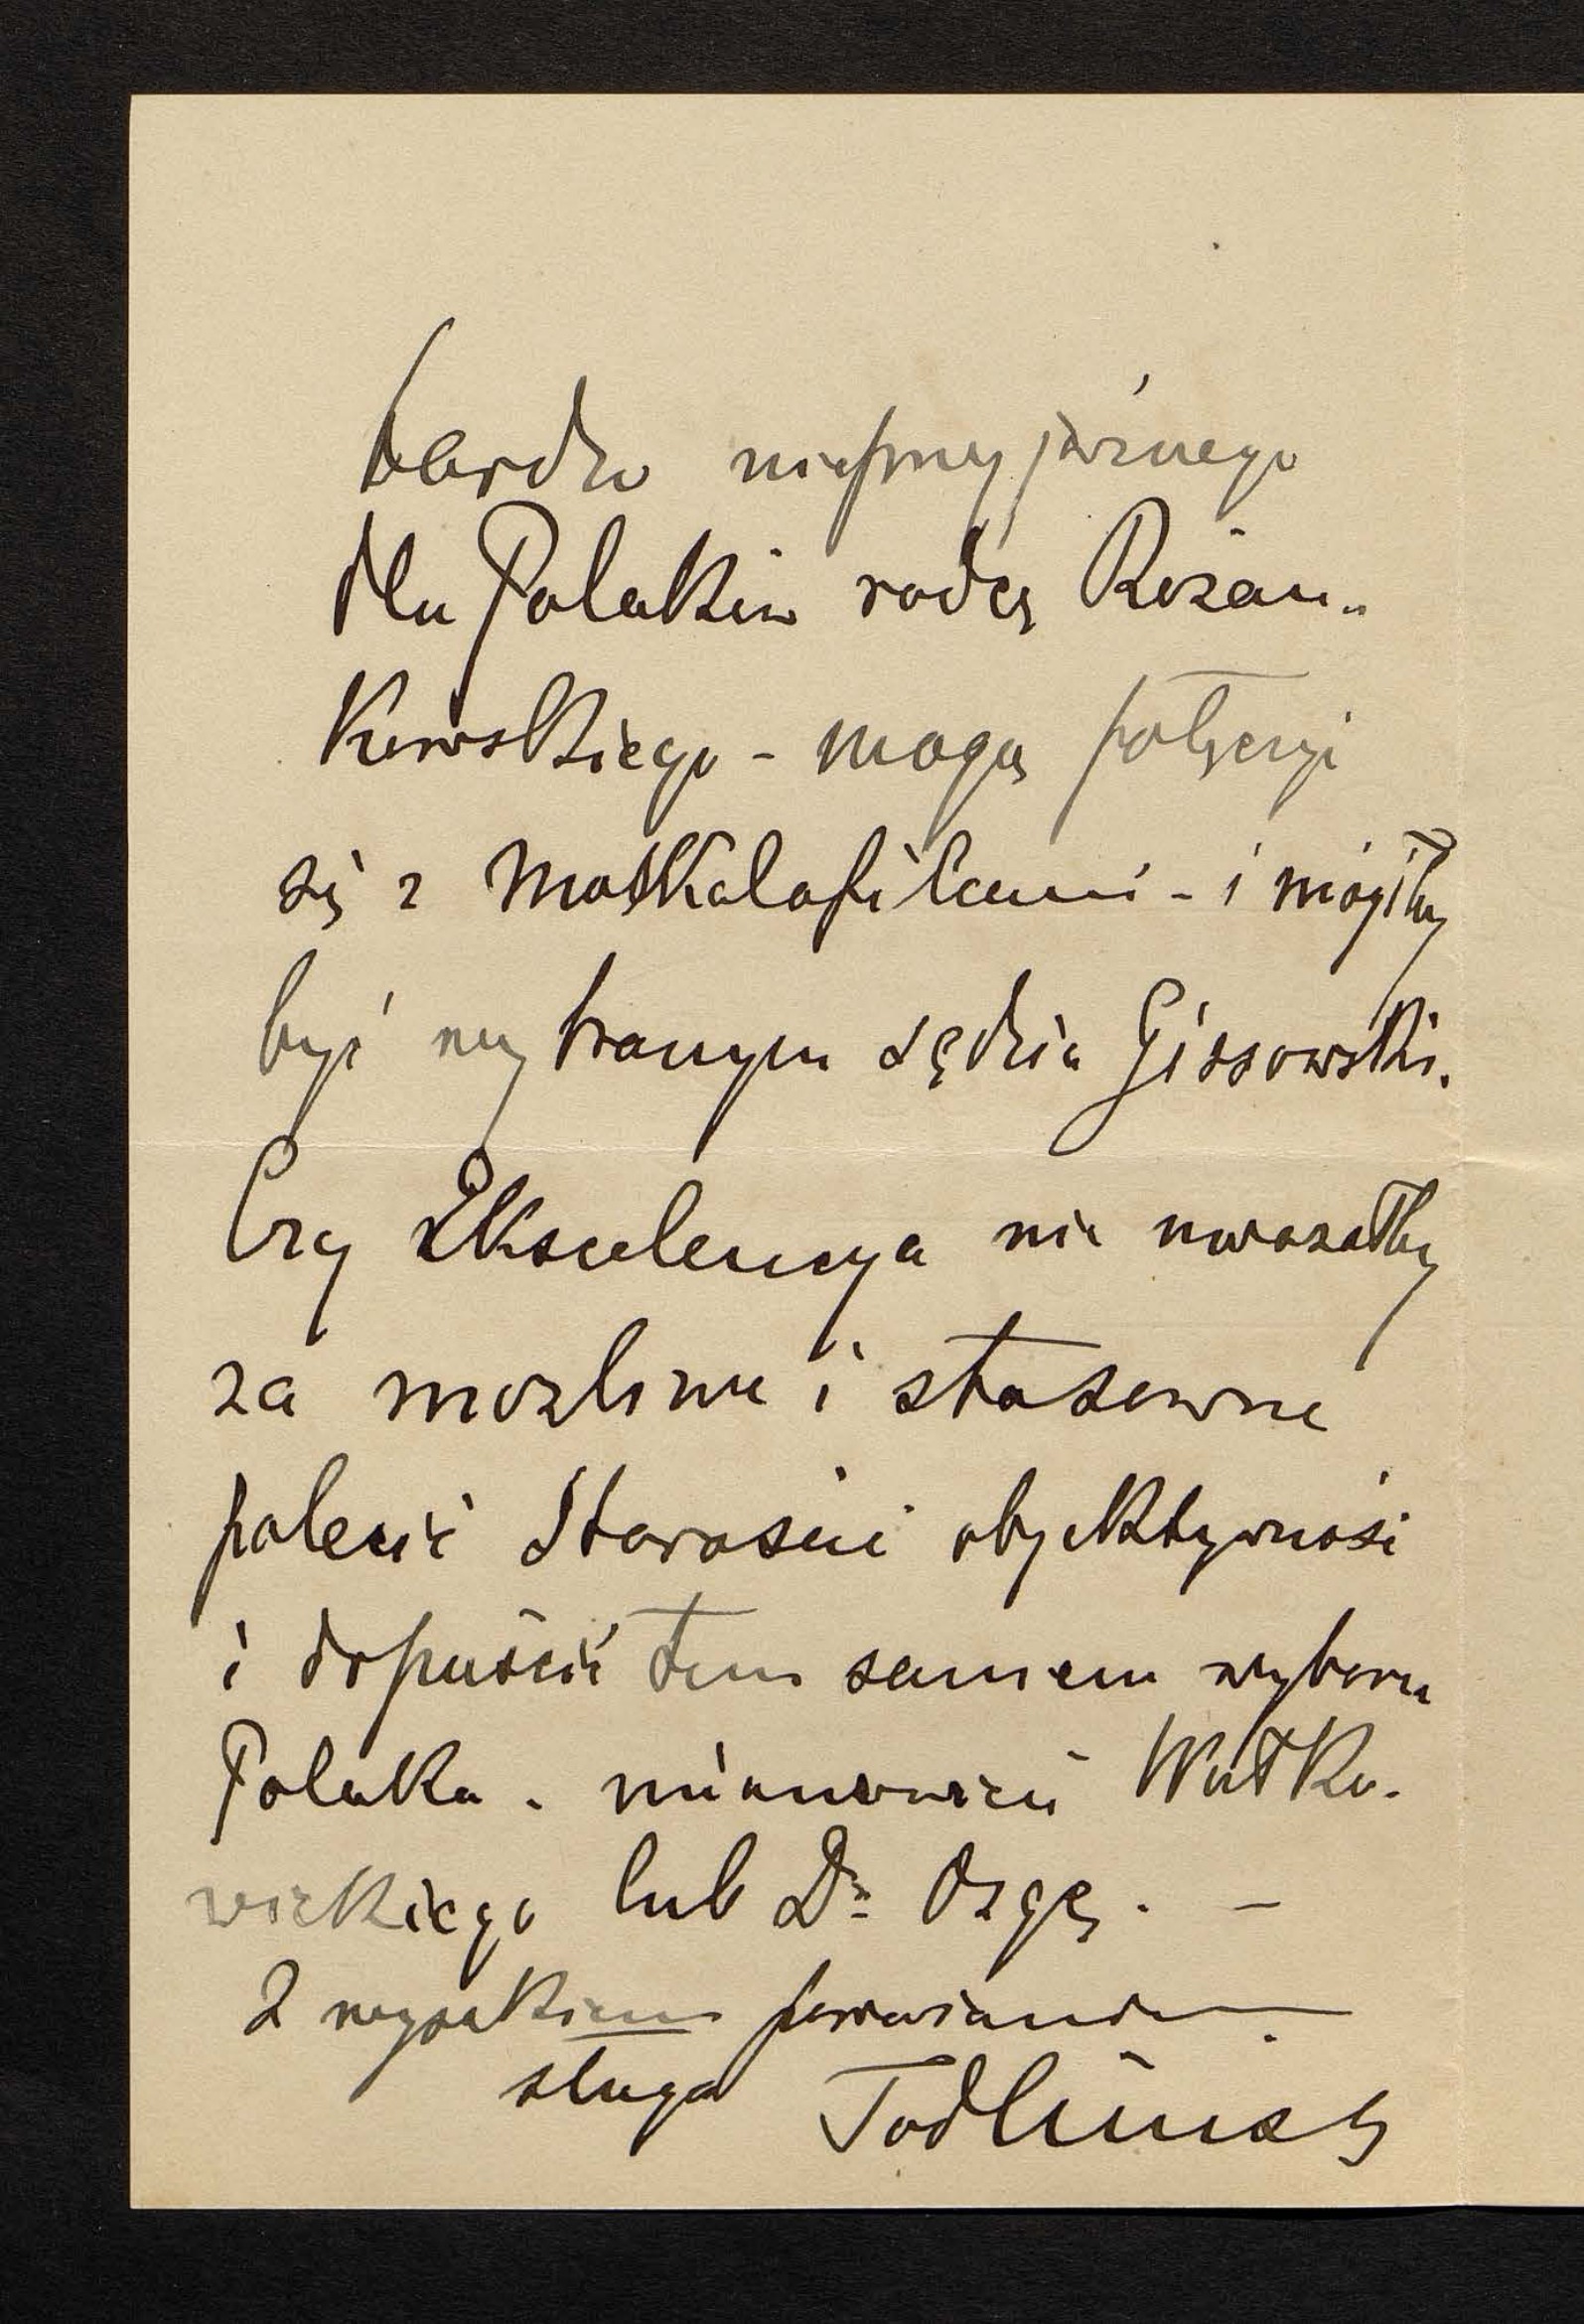 bardzo nieprzyjaznego
dla Polaków radcy Rożan-
kowskiego - mogą połączyć
się z Moskalofilami - i mógłby
być wybranym sędzia Gissowski.
Czy Ekscelencya nie uważałby
za możliwe i stosowne
polecić Staroście objektywność
i dopuścić tem samem wyboru
Polaka - mianowicie Witko-
wickiego lub Dr Ozgę. -
Z wysokiem poważaniem
sługa